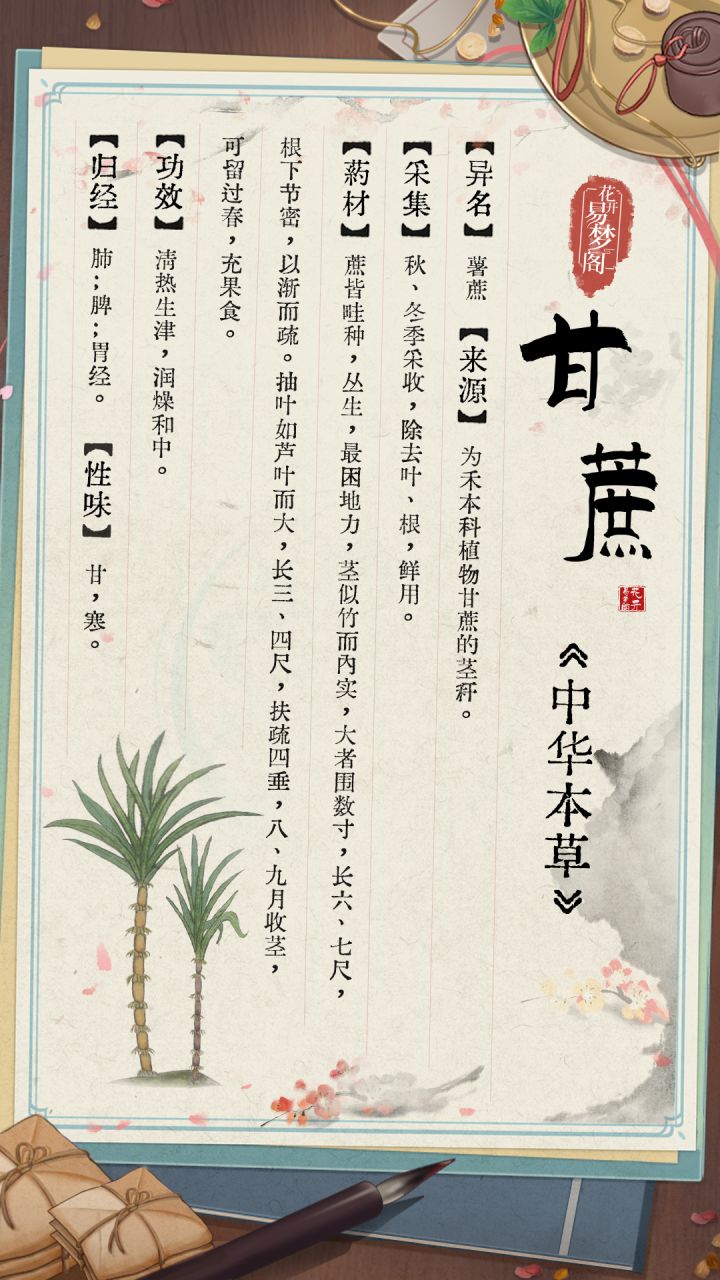 花开
易梦阁
甘蔗
《中华本草》
【异名】薯蔗【来源】为禾本科植物甘蔗的茎秆。
【采集】秋、冬季采收，除去叶、根，鲜用。
【药材】蔗皆畦种，丛生，最困地力，茎似竹而内实，大者围数寸，长六、七尺，
根下节密，以渐而疏。抽叶如芦叶而大，长三、四尺，扶疏四垂，八、九月收茎，
可留过春，充果食。
【功效】清热生津，润燥和中。
【归经】肺；脾；胃经。【性味】甘，寒。